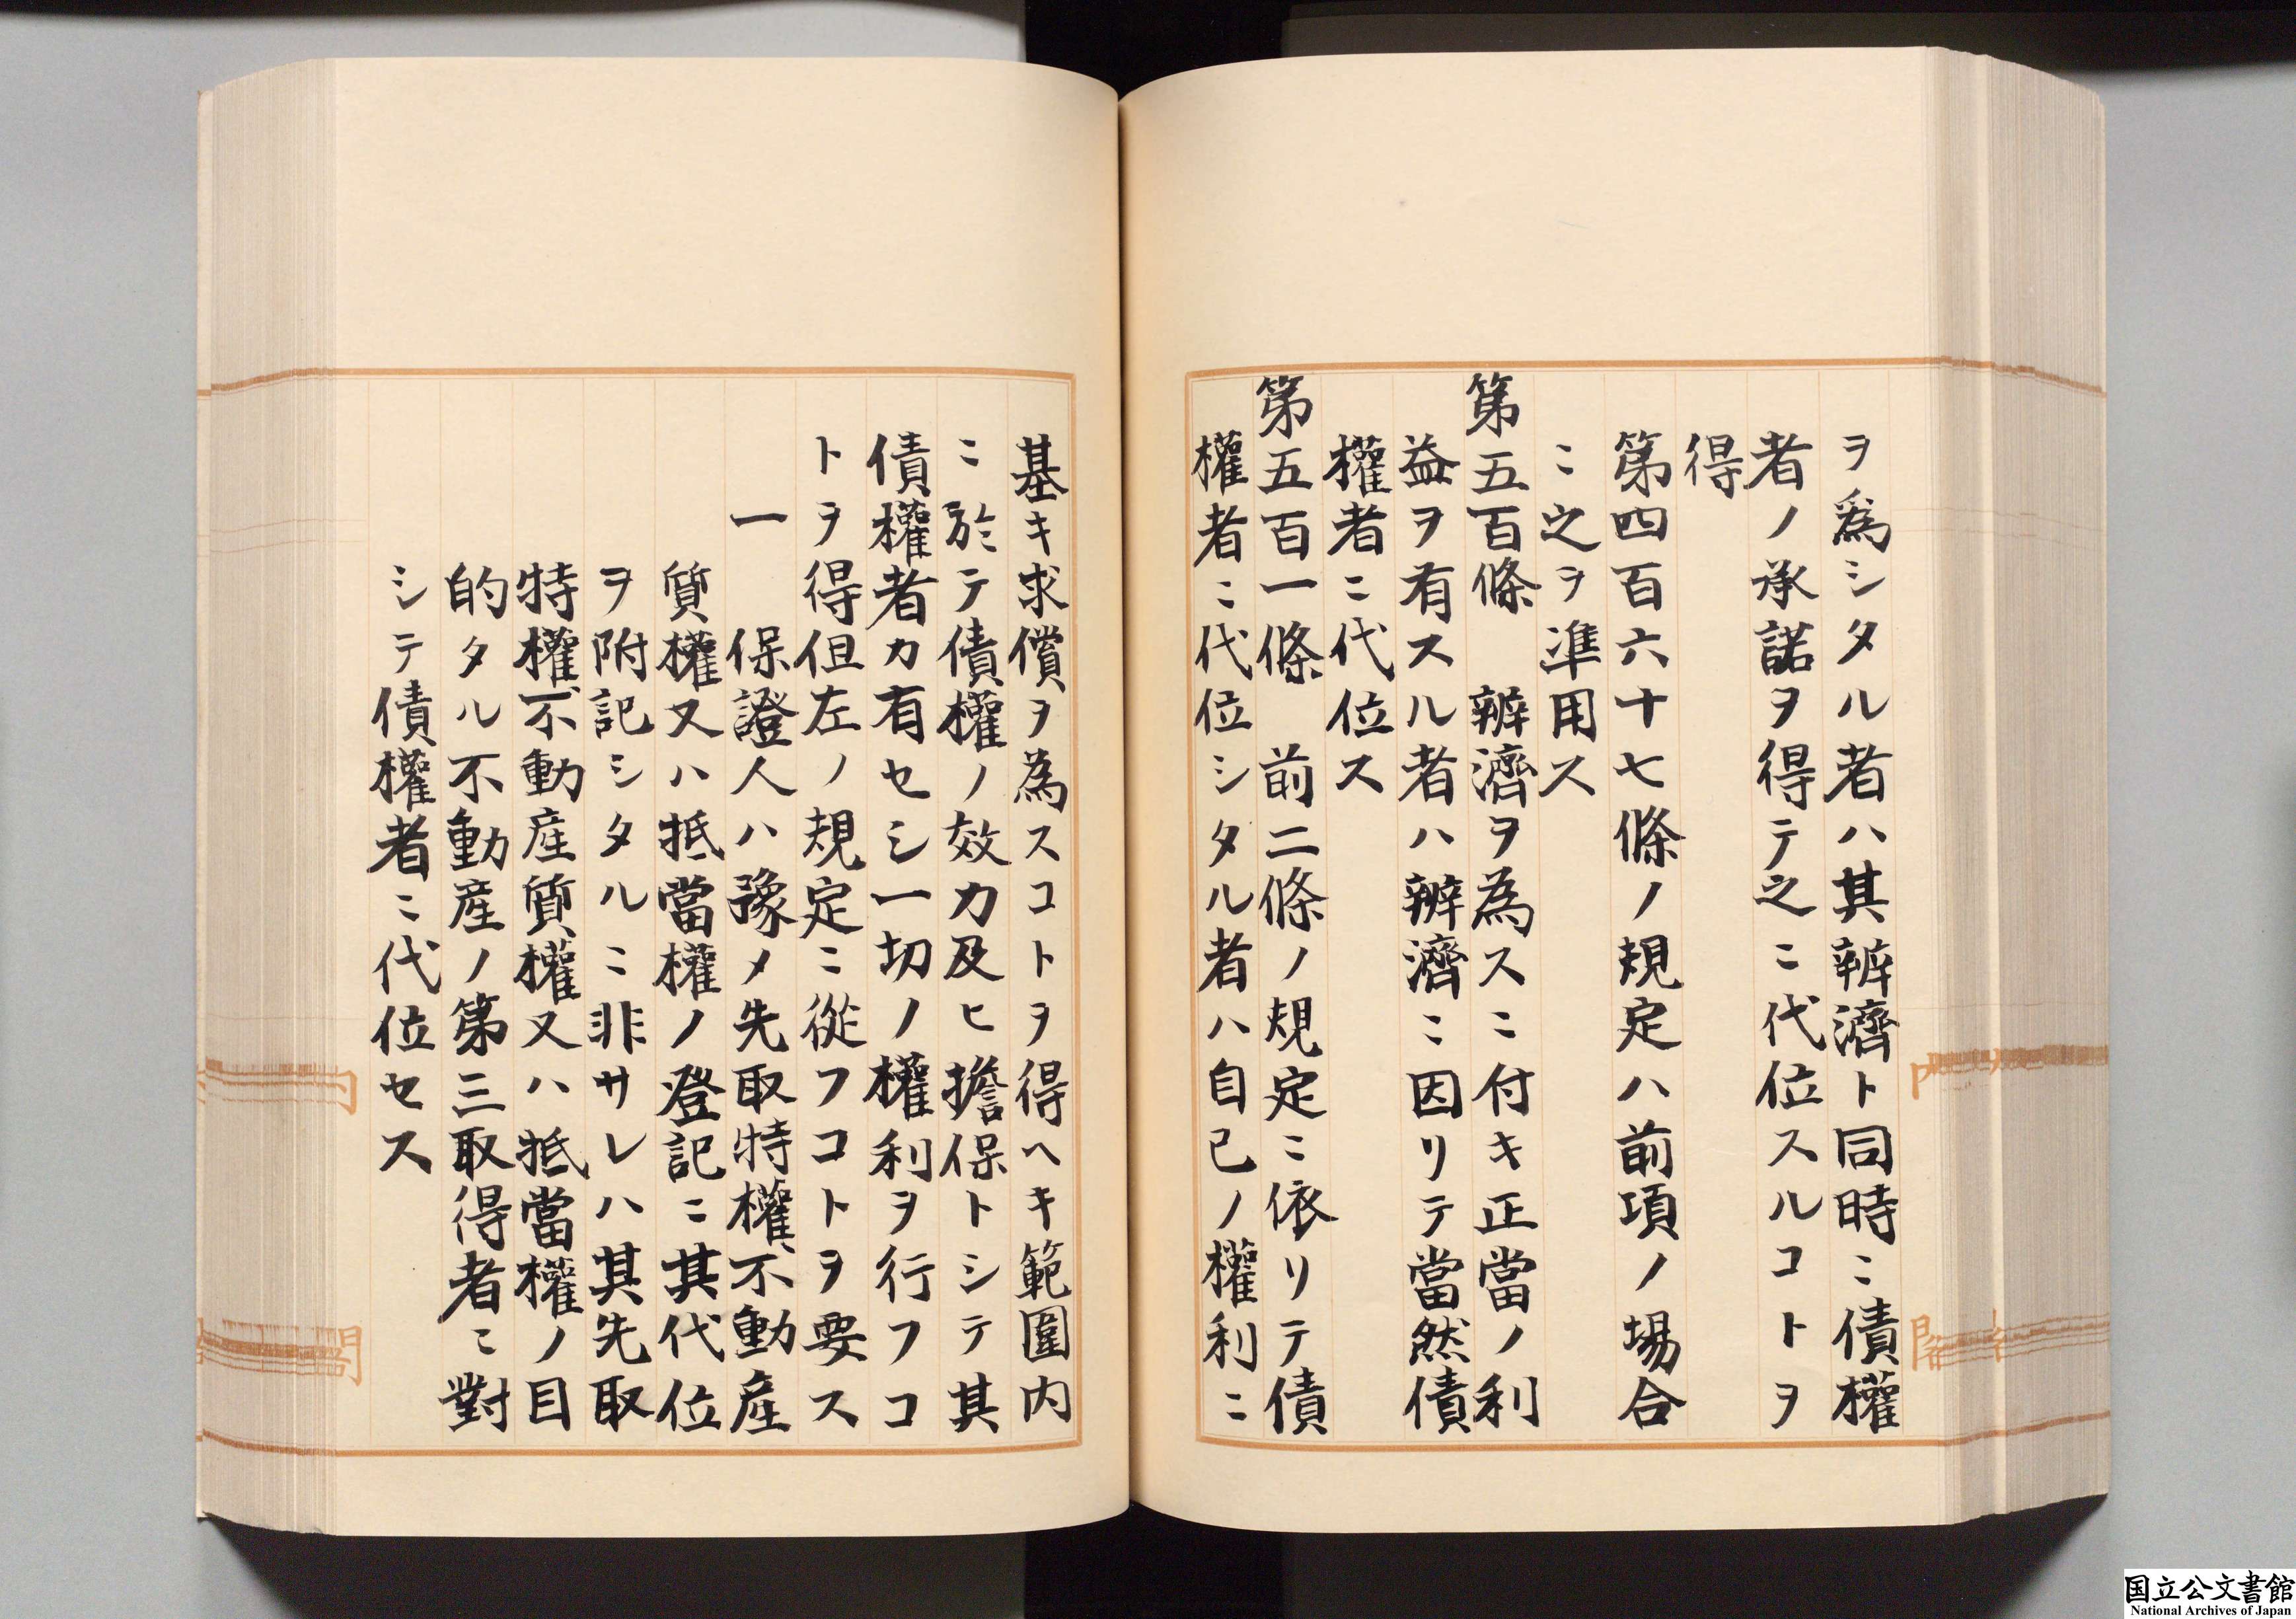 ヲ爲シタル者ハ其辨濟ト同時ニ債權
者ノ承諾ヲ得テ之ニ代位スルコトヲ
得
第四百六十七條ノ規定ハ前項ノ場合
ニ之ヲ準用ス
第五百條　辨濟ヲ為スニ付キ正當ノ利
益ヲ有スル者ハ辨濟ニ因リテ當然債
權者ニ代位ス
第五百一條　前二條ノ規定ニ依リテ債
權者ニ代位シタル者ハ自己ノ權利ニ
基キ求償ヲ為スコトヲ得ヘキ範圍内
ニ於テ債權ノ效力及ヒ擔保トシテ其
債權者カ有セシ一切ノ權利ヲ行フコ
トヲ得但左ノ規定ニ從フコトヲ要ス
一　保證人ハ豫メ先取特權、不動産
質權又ハ抵當權ノ登記ニ其代位
ヲ附記シタルニ非サレハ其先取
特權、不動産質權又ハ抵當權ノ目
的タル不動産ノ第三取得者ニ對
シテ債權者ニ代位セス
国立公文書館
National Archives of Japan